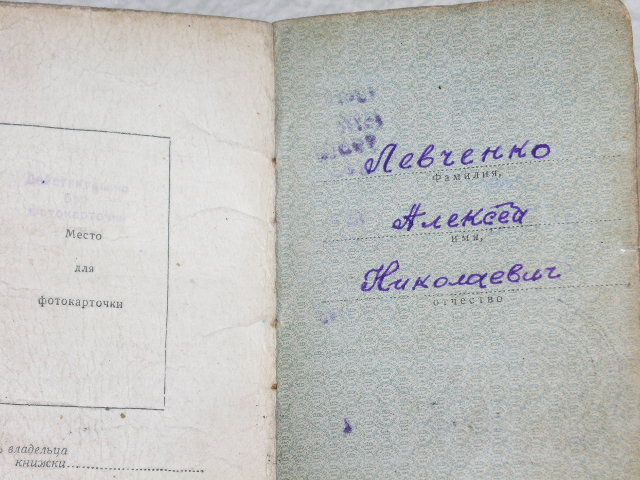 Действительно
без
фотокарточки
Место
для
фотокарточки
владельца
книжки
Левченко
фамилия,
Алексей
имя,
Николаевич
отчество